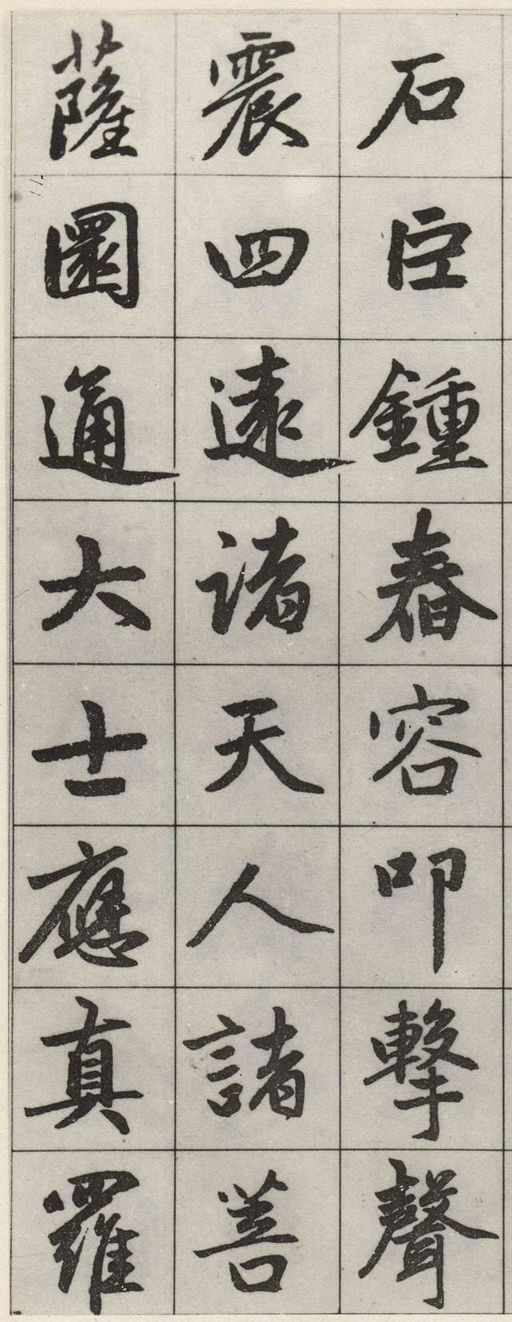 石巨鍾舂容叩擊聲
震四遠諸天人諸善
薩圜通大士應真羅